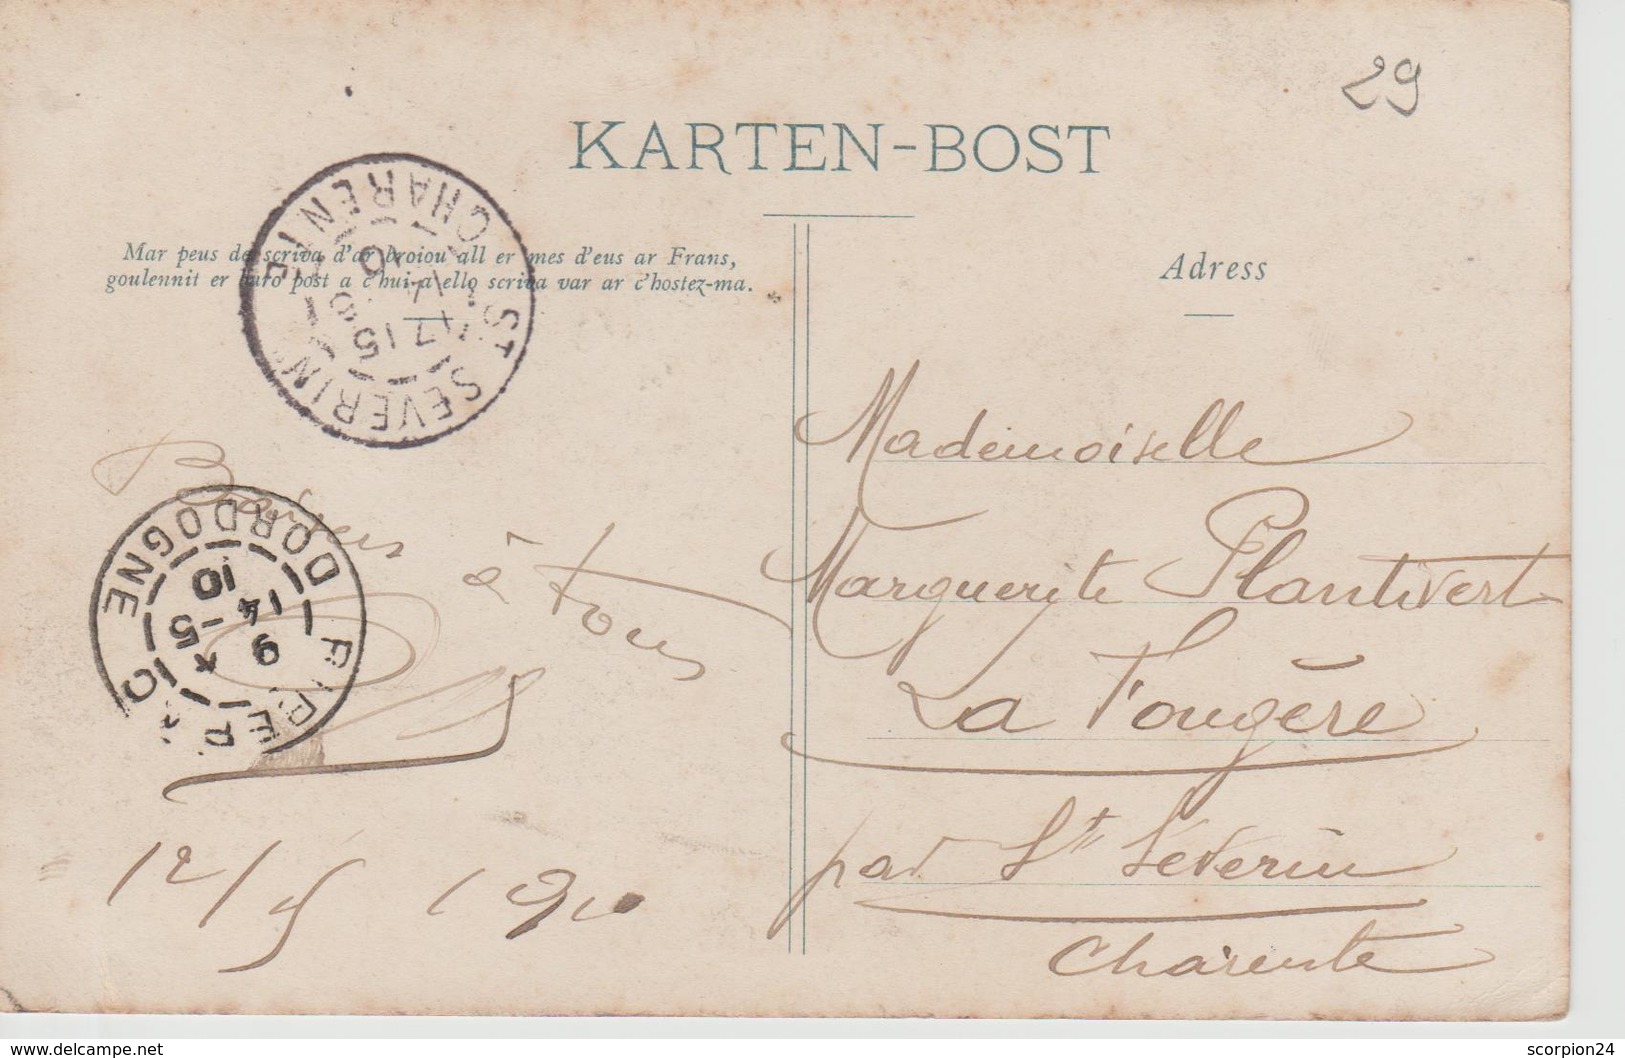 29
KARTEN-BOST
Mar peus de scriva d'ar broiou all er mes d'eus ar Frans,
goulennit er buro post a c'hui a ello scriva var ar c'hostez-ma.
Adress
ST SEVERIN
CHARENTE
15
DORDOGNE
10
14 -5
9
à tous
12/5 1910
Mademoiselle
Marguerite Plantivert
La Fougère
par St Séverin
Charente
www.delcampe.net
scorpion24